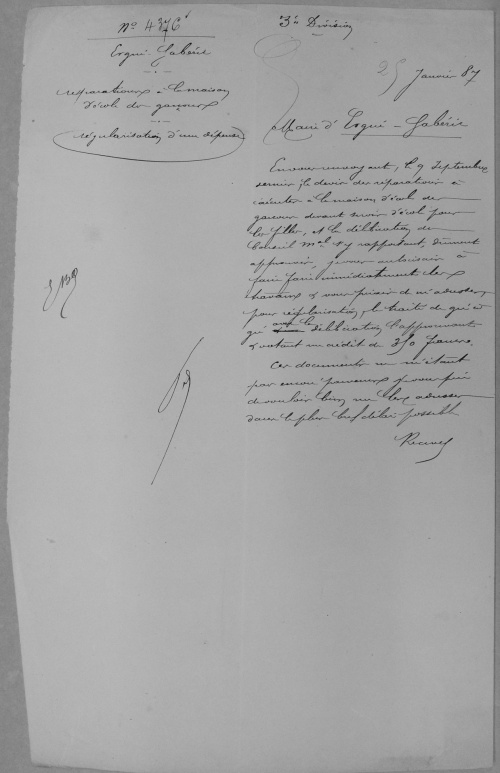 N° 4376
Ergué-Gabéric
réparations à la maison
d'école de garçons
régularisation d'une dépense
3e Division
25 Janvier 87
Maire d'Ergué-Gabéric
En vous renvoyant, le 9 Septembre
dernier, le devis des réparations à
exécuter à la maison d'école de
garçons devant servir d'école pour
les filles, et la délibération du
Conseil mal s'y rapportant, dûment
approuvés, je vous autorisais à
faire faire immédiatement les
travaux & vous priais de m'adresser,
pour régularisation, le traité de gré à
gré avec la délibération l'approuvant
& votant un crédit de 350 francs.
Ces documents ne m'étant
pas encore parvenus, je vous prie
de vouloir bien me les adresser
dans le plus bref délai possible
Recevez